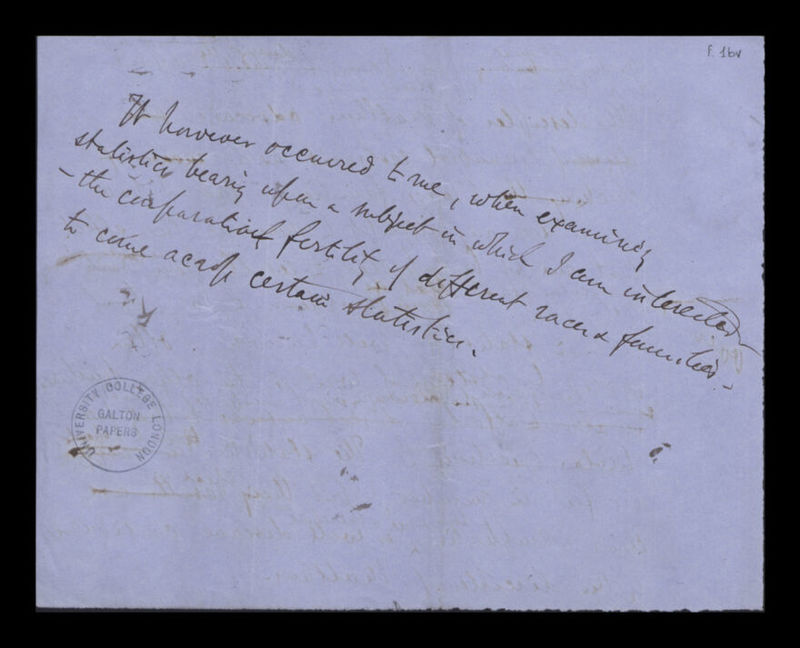 f. 16v
It however occurred to me, when examining
statistics bearing upon a subject in which I am interested –
– the comparative fertility of different races & families –
to come across certain statistics.
UNIVERSITY COLLEGE LONDON
GALTON
PAPERS